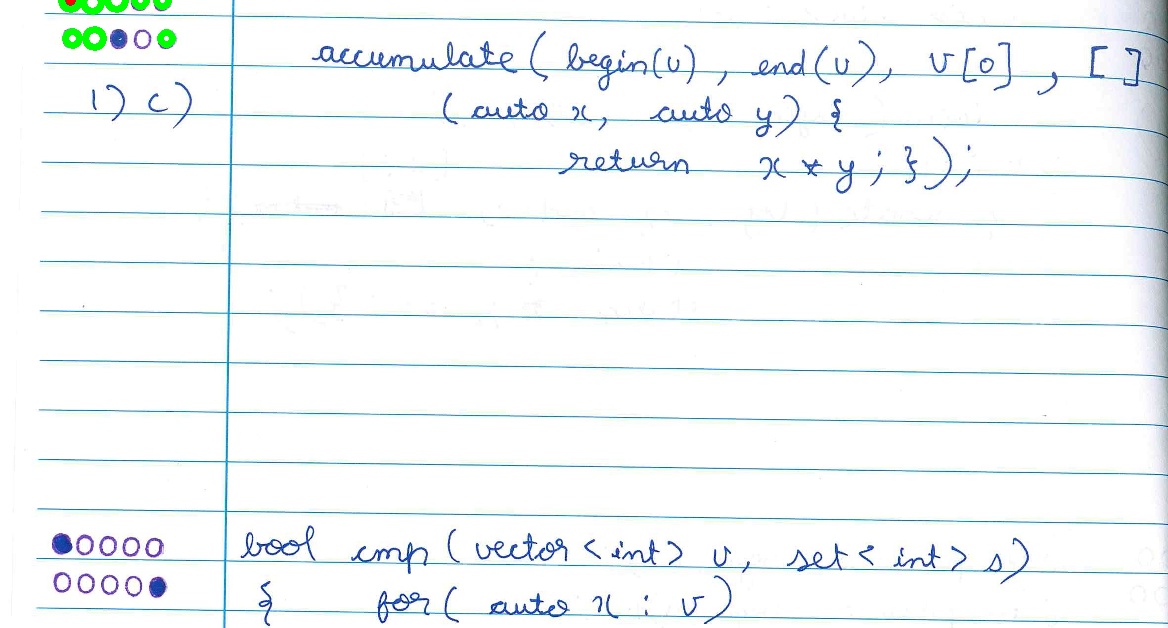 accumulate ( begin(v) , end(v), v[0] , [ ]
1) c) ( auto x, auto y) {
return x * y ; } ) ;
bool cmp ( vector < int > v, set < int > s)
{ for ( auto x : v)